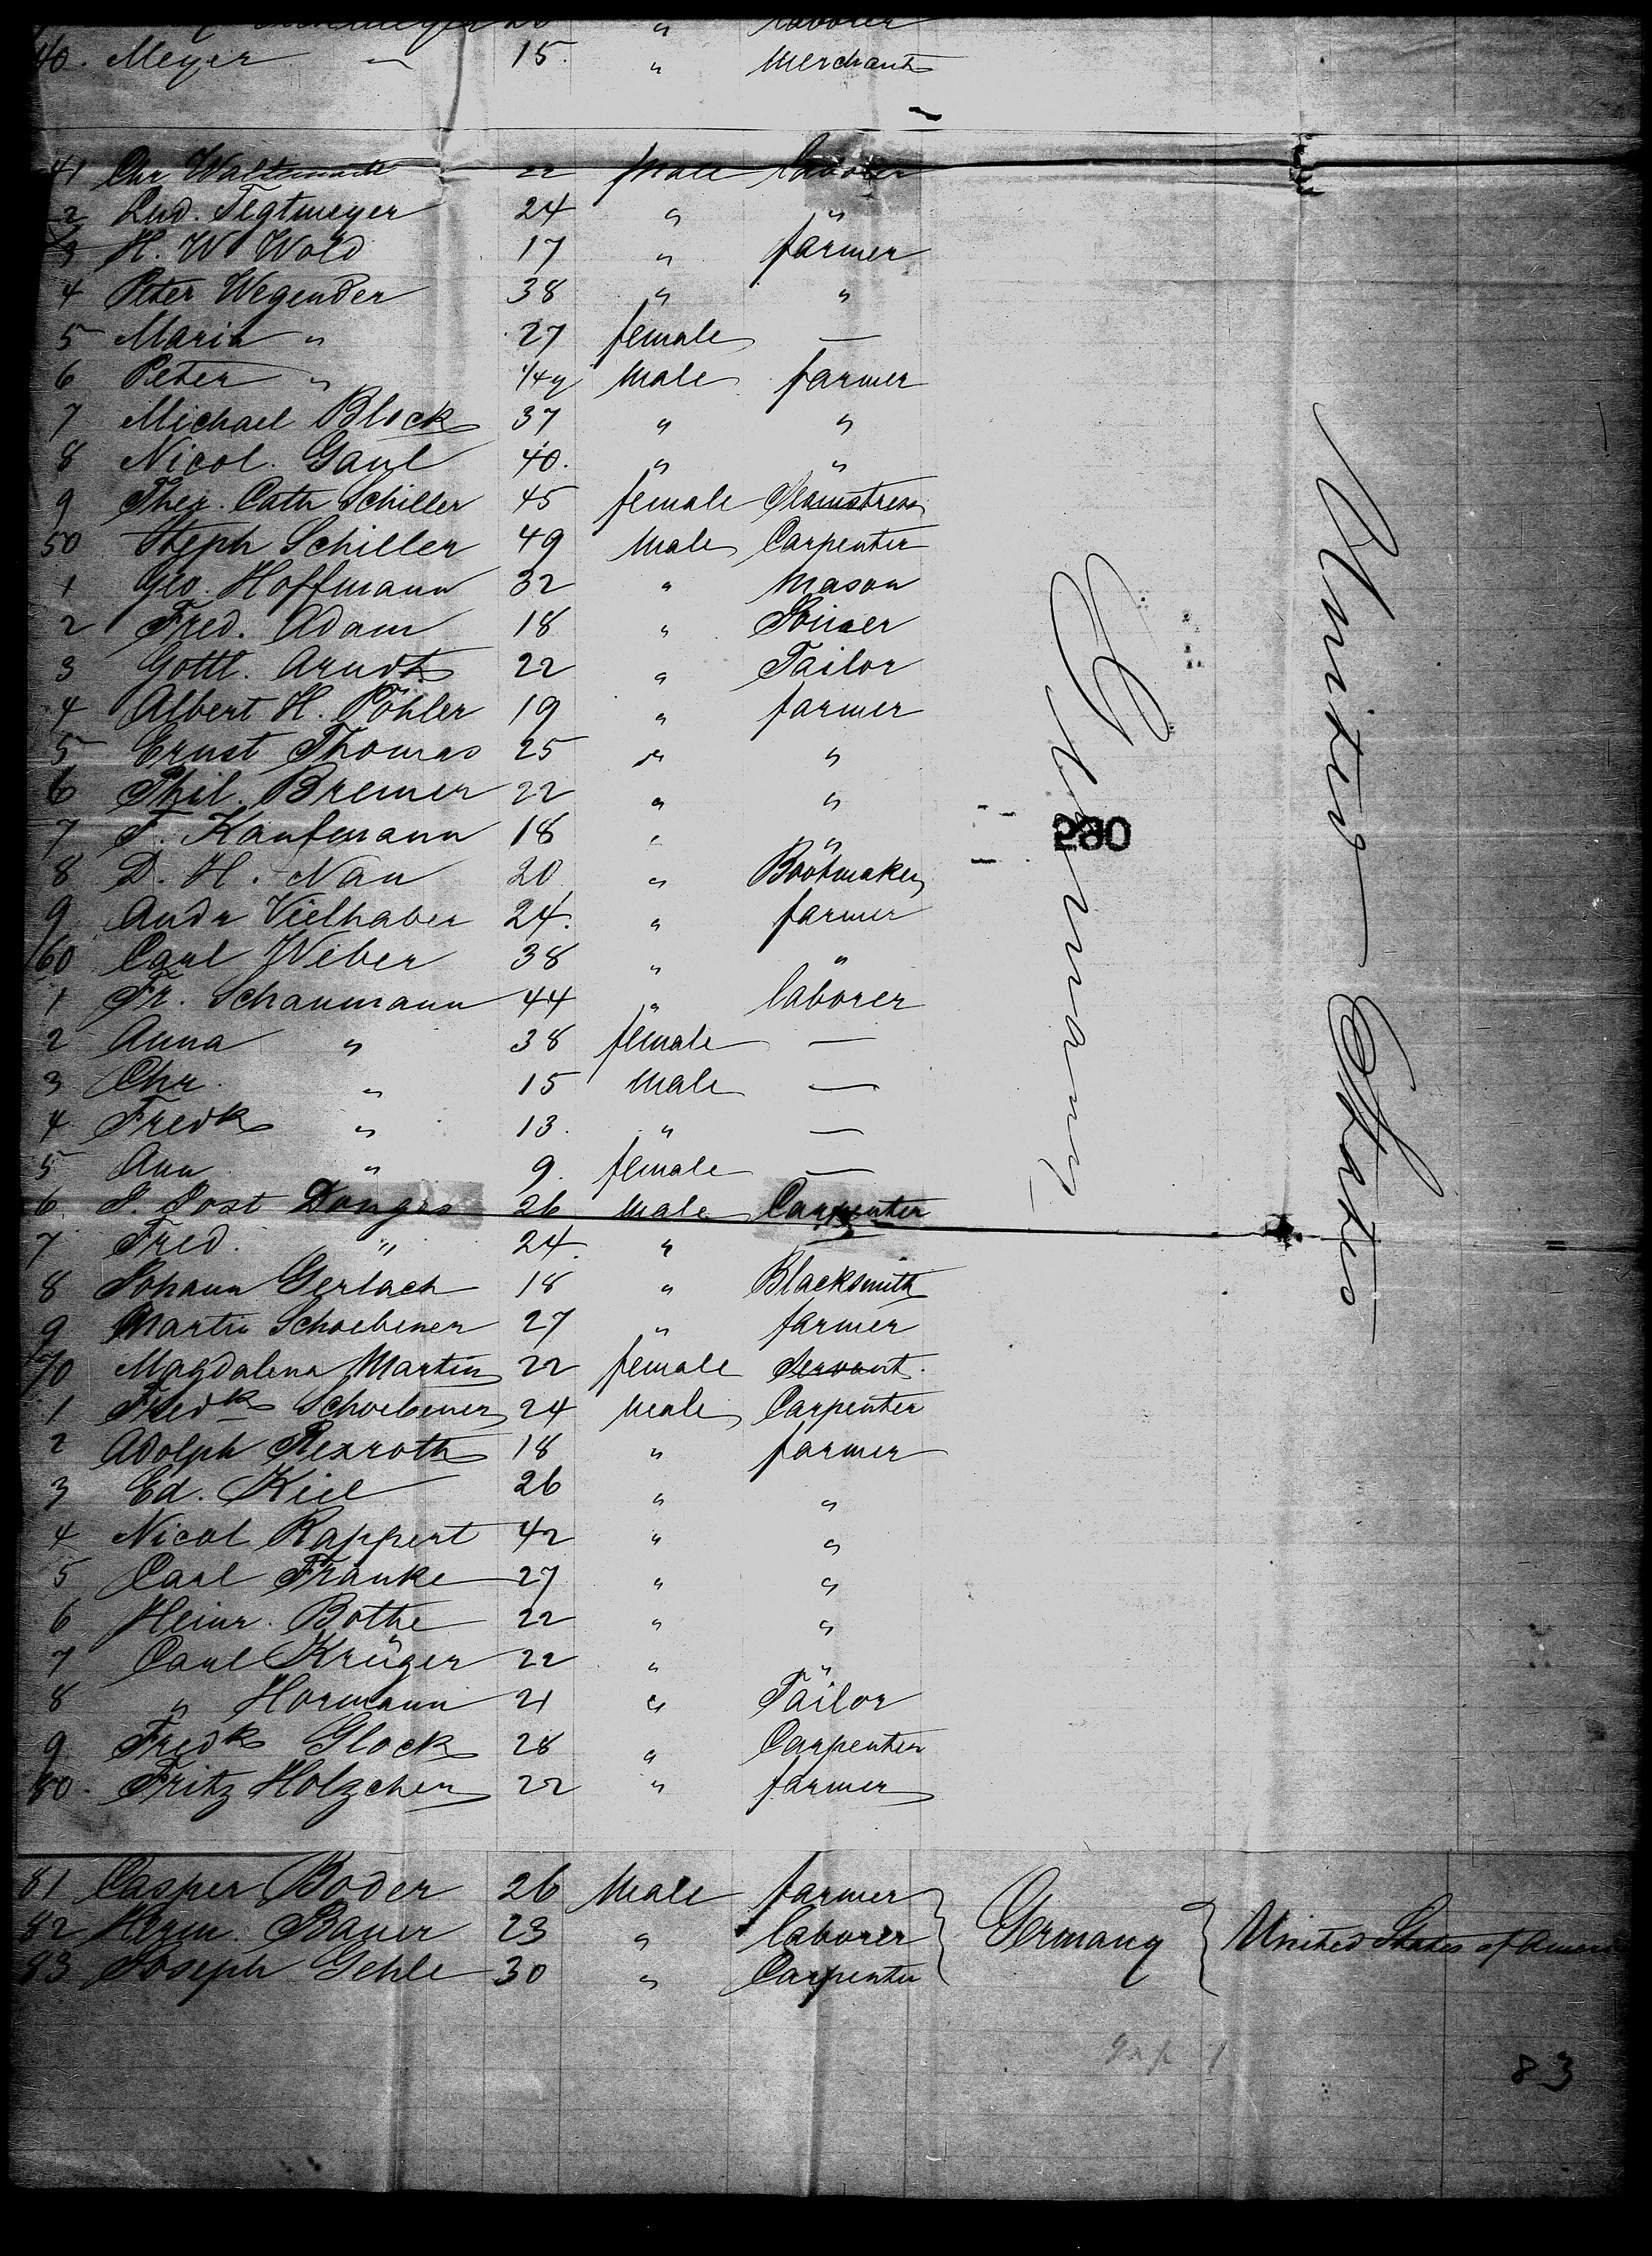 laborer
40. Meyer " 15. " Merchant
41 Chr Waltemath 22 Male laborer
2 Lud. Tegtmeyer 24 " "
3 H. W. Wold 17 " farmer
4 Peter Wegender 38 " "
5 Maria " 27 female —
6 Peter " Male farmer
7 Michael Block 37 " "
8 Nicol. Gaul 40. " "
9 Ther. Cath Schiller 45 female Seamstress
50 Steph Schiller 49 Male Carpenter
1 Geo. Hoffmann 32 " Mason
2 Fred. Adam 18 "
3 Gottl. Arndt 22 " Tailor
4 Albert H. Pöhler 19 " farmer
5 Ernst Thomas 25 " "
6 Phil. Bremer 22 " "
7 F. Kaufmann 18 " "
8 D. H. Nau 20 " Bootmaker
9 Andr Vielhaber 24. " farmer
60 Carl Weber 38 " "
1 Fr. Schaumann 44 " laborer
2 Anna " 38 female —
3 Chr. " 15 Male —
4 Fredk " 13. " —
5 Ann " 9. female —
6 J. Jost Donges 26 Male Carpenter
7 Fred. " 24. " "
8 Johann Gerlach 18 " Blacksmith
9 Martin Schoebener 27 " farmer
70 Magdalena Martin 22 female Servant.
1 Fredk Schoebener 24 Male Carpenter
2 Adolph Rexroth 18 " farmer
3 Ed. Kiel 26 " "
4 Nicol Rappert 42 " "
5 Carl Franke 27 " "
6 Heinr. Bothe 22 " "
7 Carl Krüger 22 " "
8 " Hormann 21 " Tailor
9 Fredk Glock 28 " Carpenter
80. Fritz Holzchen 22 " farmer
Germany
280
United States
81 Casper Boder 26 Male farmer
82 Herm. Bauer 23 " laborer Germany United States of Amer
83 Joseph Gehle 30 " Carpenter
83